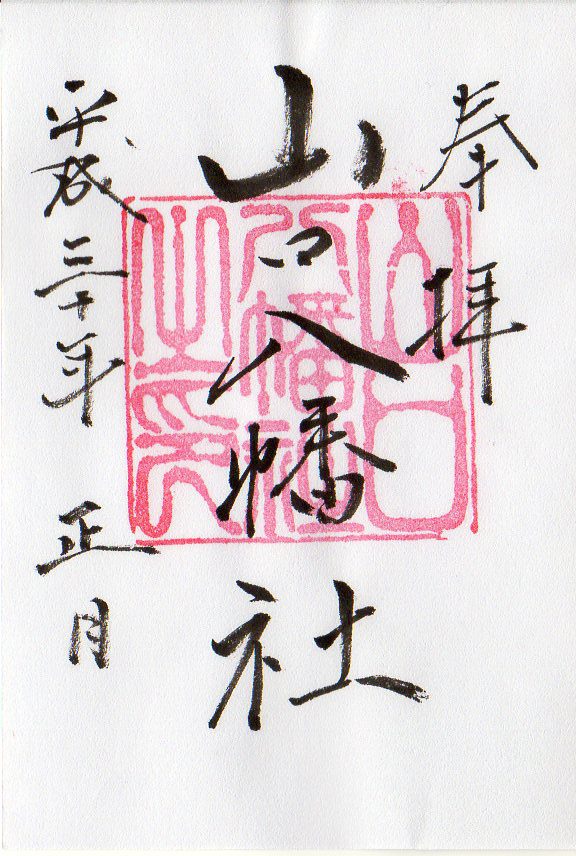 奉拝
山口八幡社
平成三十年 正月
山口
八幡社
之印